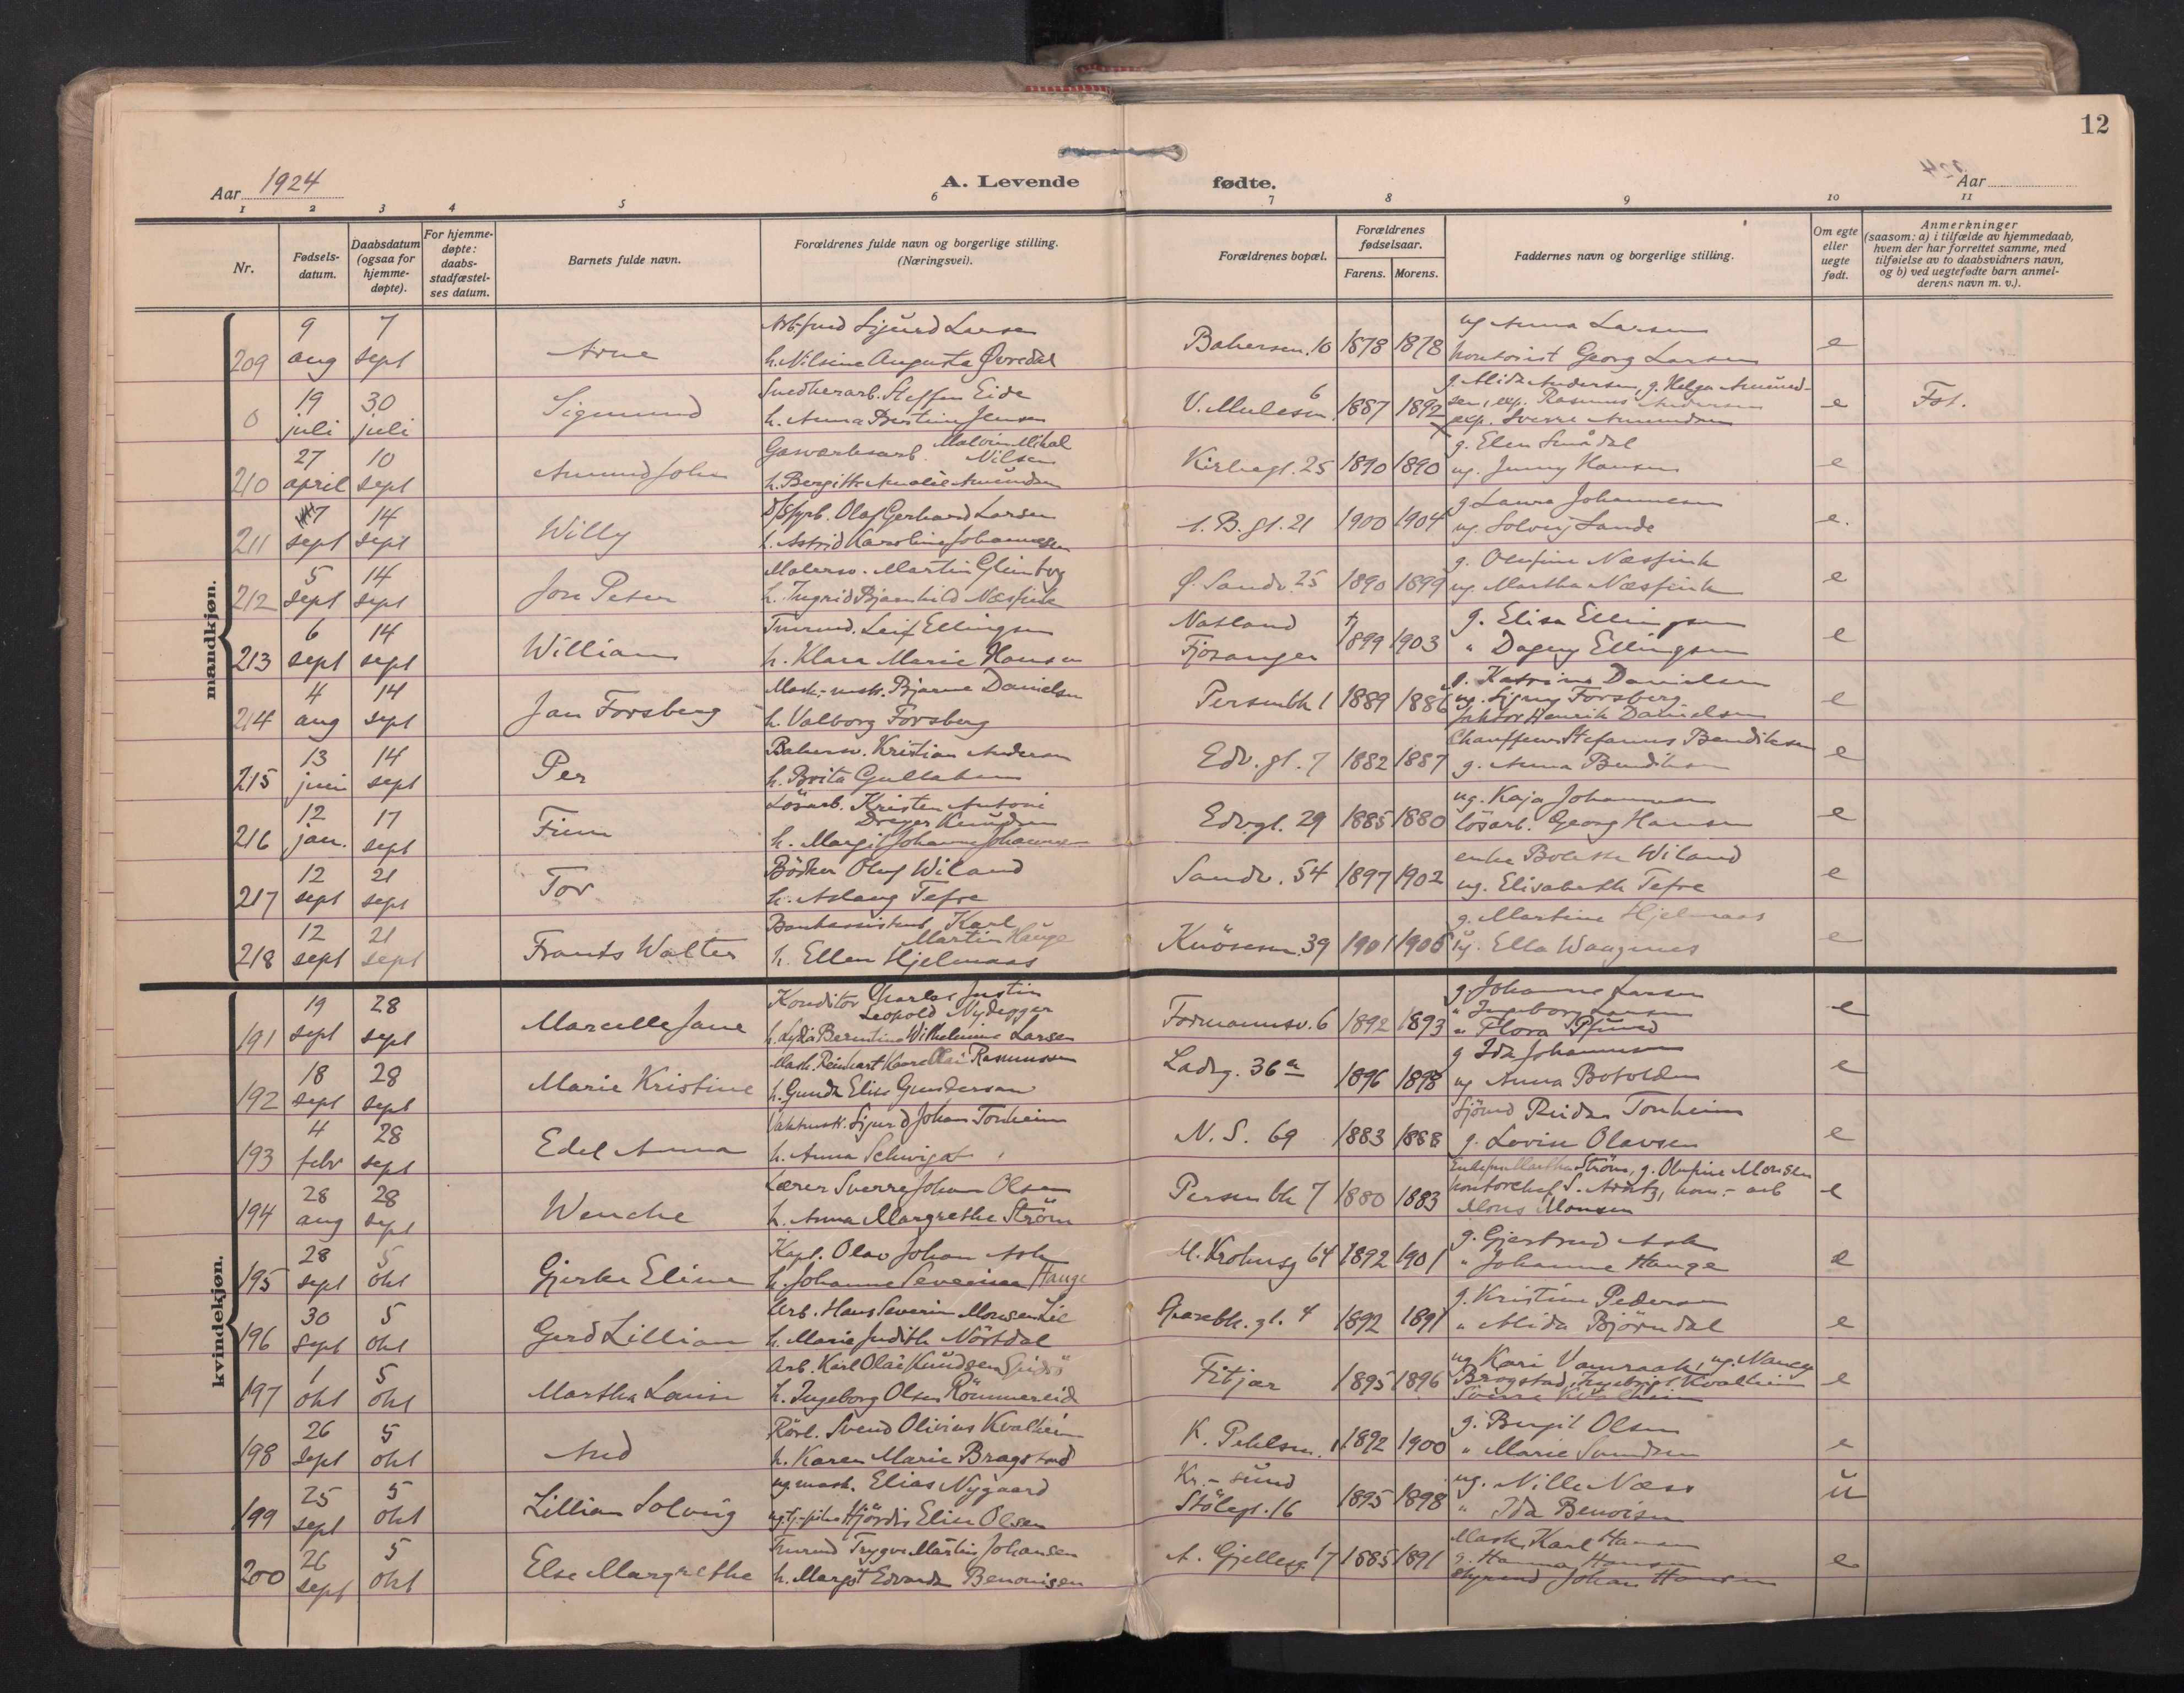 12
Aar 1924
A. Levende fødte.
Aar
1 2 3 4 5 6 7 8 9 10 11
Nr.
Fødsels-
datum.
Daabsdatum
(ogsaa for
hjemme-
døpte).
For hjemme-
døpte:
daabs-
stadfæstel-
ses datum.
Barnets fulde navn.
Forældrenes fulde navn og borgerlige stilling.
(Næringsvei).
Forældrenes bopæl.
Forældrenes
fødselsaar.
Farens. Morens.
Faddernes navn og borgerlige stilling.
Om egte
eller
uegte
født.
Anmerkninger
(saasom: a) i tilfælde av hjemmedaab,
hvem der har forrettet samme, med
tilføielse av to daabsvidners navn,
og b) ved uegtefødte barn anmel-
derens navn m. v.).
mandkjøn.
209 9 aug 7 sept Arne
Sigurd Larsen
h. Nilsine Augusta Øvredal
10 1878 1878
ug Anna Larsen
kontorist Georg Larsen
e
0 19 juli 30 juli Sigmund
Steffen Eide
h. Anna Jensen
V. Mulesm. 6 1887 1892
g. Alida Andersen, g. Helga Amund-
sen, exp. Rasmus Andersen
exp. Sverre Amundsen
e Fst.
210 27 april 10 sept Amund John
Gasverksarb. Malvin Mikal
Nilsen
h. Bergitte Amalie Amundsen
Kirkegt. 25 1890 1890
g. Elen Smådal
ug. Jenny Hansen
e
211 7 sept 14 sept Willy
Olaf Gerhard Larsen
h. Astrid Karoline Johannesen
21 1900 1904
g Laura Johannesen
ug. Solveig Sande
e.
212 5 sept 14 sept Jon Peter
Malersv. Martin
h. Ingrid
Ø. Sandv. 25 1890 1899
g. Olufine
ug. Martha
e
213 6 sept 14 sept William
Leif Ellingsen
h. Klara Marie Hansen
Natland
Fjøsanger
1899 1903
g. Elisa Ellingsen
" Dagny Ellingsen
e
214 4 aug 14 sept Jan Forsberg
Bjarne Danielsen
h. Valborg Forsberg
Persenbk 1 1889 1886
g. Katrine Danielsen
ug. Signy Forsberg
Henrik Danielsen
e
215 13 juni 14 sept Per
Bakersv. Kristian Andersen
h. Brita
Edv. gt. 7 1882 1887
Chauffeur Stefanus Bendiksen
g. Anna Bendiksen
e
216 12 jan. 17 sept Finn
Løsarb. Kristen Antoni
Dreyer Knudsen
h. Margit Johanne Johannesen
Edv.gt. 29 1885 1880
ug. Kaja Johannesen
løsarb. Georg Hansen
e
217 12 sept 21 sept Tor
Bødker Oluf Wiland
h. Aslaug Tefre
Sandv. 54 1897 1902
enke Bolette Wiland
ug. Elisabeth Tefre
e
218 12 sept 21 sept Frants Walter
Bankassistent Karl
Martin Hauge
h. Ellen Hjelmaas
Knøsesm. 39 1901 1905
g. Martine Hjelmaas
ug. Ella
e
kvindekjøn.
191 19 sept 28 sept Marcelle Jane
Konditor Charles Justin
Leopold Nydegger
h. Lydia Berentine Wilhelmine Larsen
Formannsv. 6 1892 1893
g. Johanne Larsen
" Ingeborg Larsen
" Flora
e
192 18 sept 28 sept Marie Kristine
Mask. Reinhart Kaare Olai Rasmussen
h. Gunda Elise Gundersen
Ladeg. 36a 1896 1898
g Ida Johannesen
ug Anna
e
193 4 febr 28 sept Edel Anna
Sigurd Johan Tonheim
h. Anna
N. S. 69 1883 1888
Sjømd Reidar Tonheim
g. Lovise Olavsen
e
194 28 aug 28 sept Wenche
Lærer Sverre Johan Olsen
h. Anna Margrethe Strøm
Persenbk 7 1880 1883
Enkefru Martha Strøm, g. Olufine Monsen
kontorchef S.
Mons Monsen
e
195 28 sept 5 okt Gjerke Eline
Kapt. Olav Johan Ask
h. Johanne Hauge
M. Krohnsg 64 1892 1901
g. Gjertrud Ask
" Johanne Hauge
e
196 30 sept 5 okt Gerd Lillian
Arb. Hans Severin Monsen Lie
h. Marie Judith
4 1892 1891
g. Kristine Pedersen
" Alida Bjørndal
e
197 1 okt 5 okt Martha Louise
Arb. Karl Olai Knudsen
h. Ingeborg Olsen Rømmereid
Fitjar 1895 1896
ug Kari, ug. Nancy
Bragstad, Ingebrigt Kvalheim
Sverre Kvalheim
e
198 26 sept 5 okt Aud
Svend Olivius Kvalheim
h. Karen Marie Bragstad
1 1892 1900
g. Bergit Olsen
" Marie
e
199 25 sept 5 okt Lillian Solveig
ug mask. Elias Nygaard
Hjørdis Elise Olsen
Kr.-sund
Stølegt. 16 1895 1898
ug. Nille Næss
" Ida
u
200 26 sept 5 okt Else Margrethe
Trygve Martin Johansen
h. Margit Edvarda Benonisen
A. Gjellesg. 17 1885 1891
Mask. Karl Hansen
g. Hanna Hansen
Johan Hansen
e